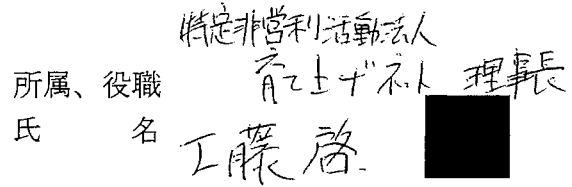 特定非営利活動法人
所属、役職 育て上げネット 理事長
氏 名 工藤 啓